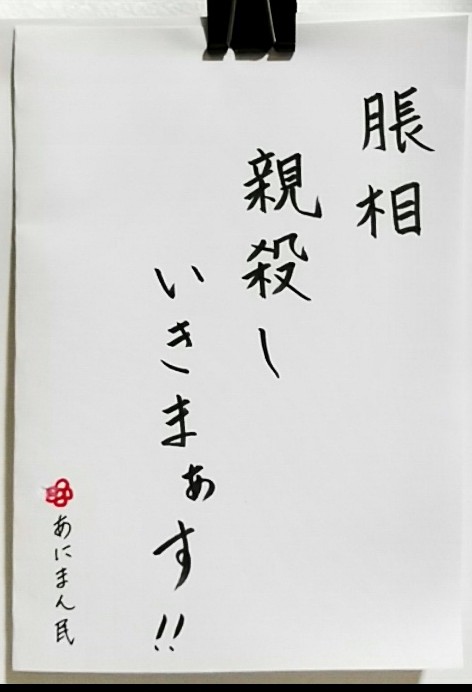 脹相
親殺し
いきまぁす!!
あにまん民